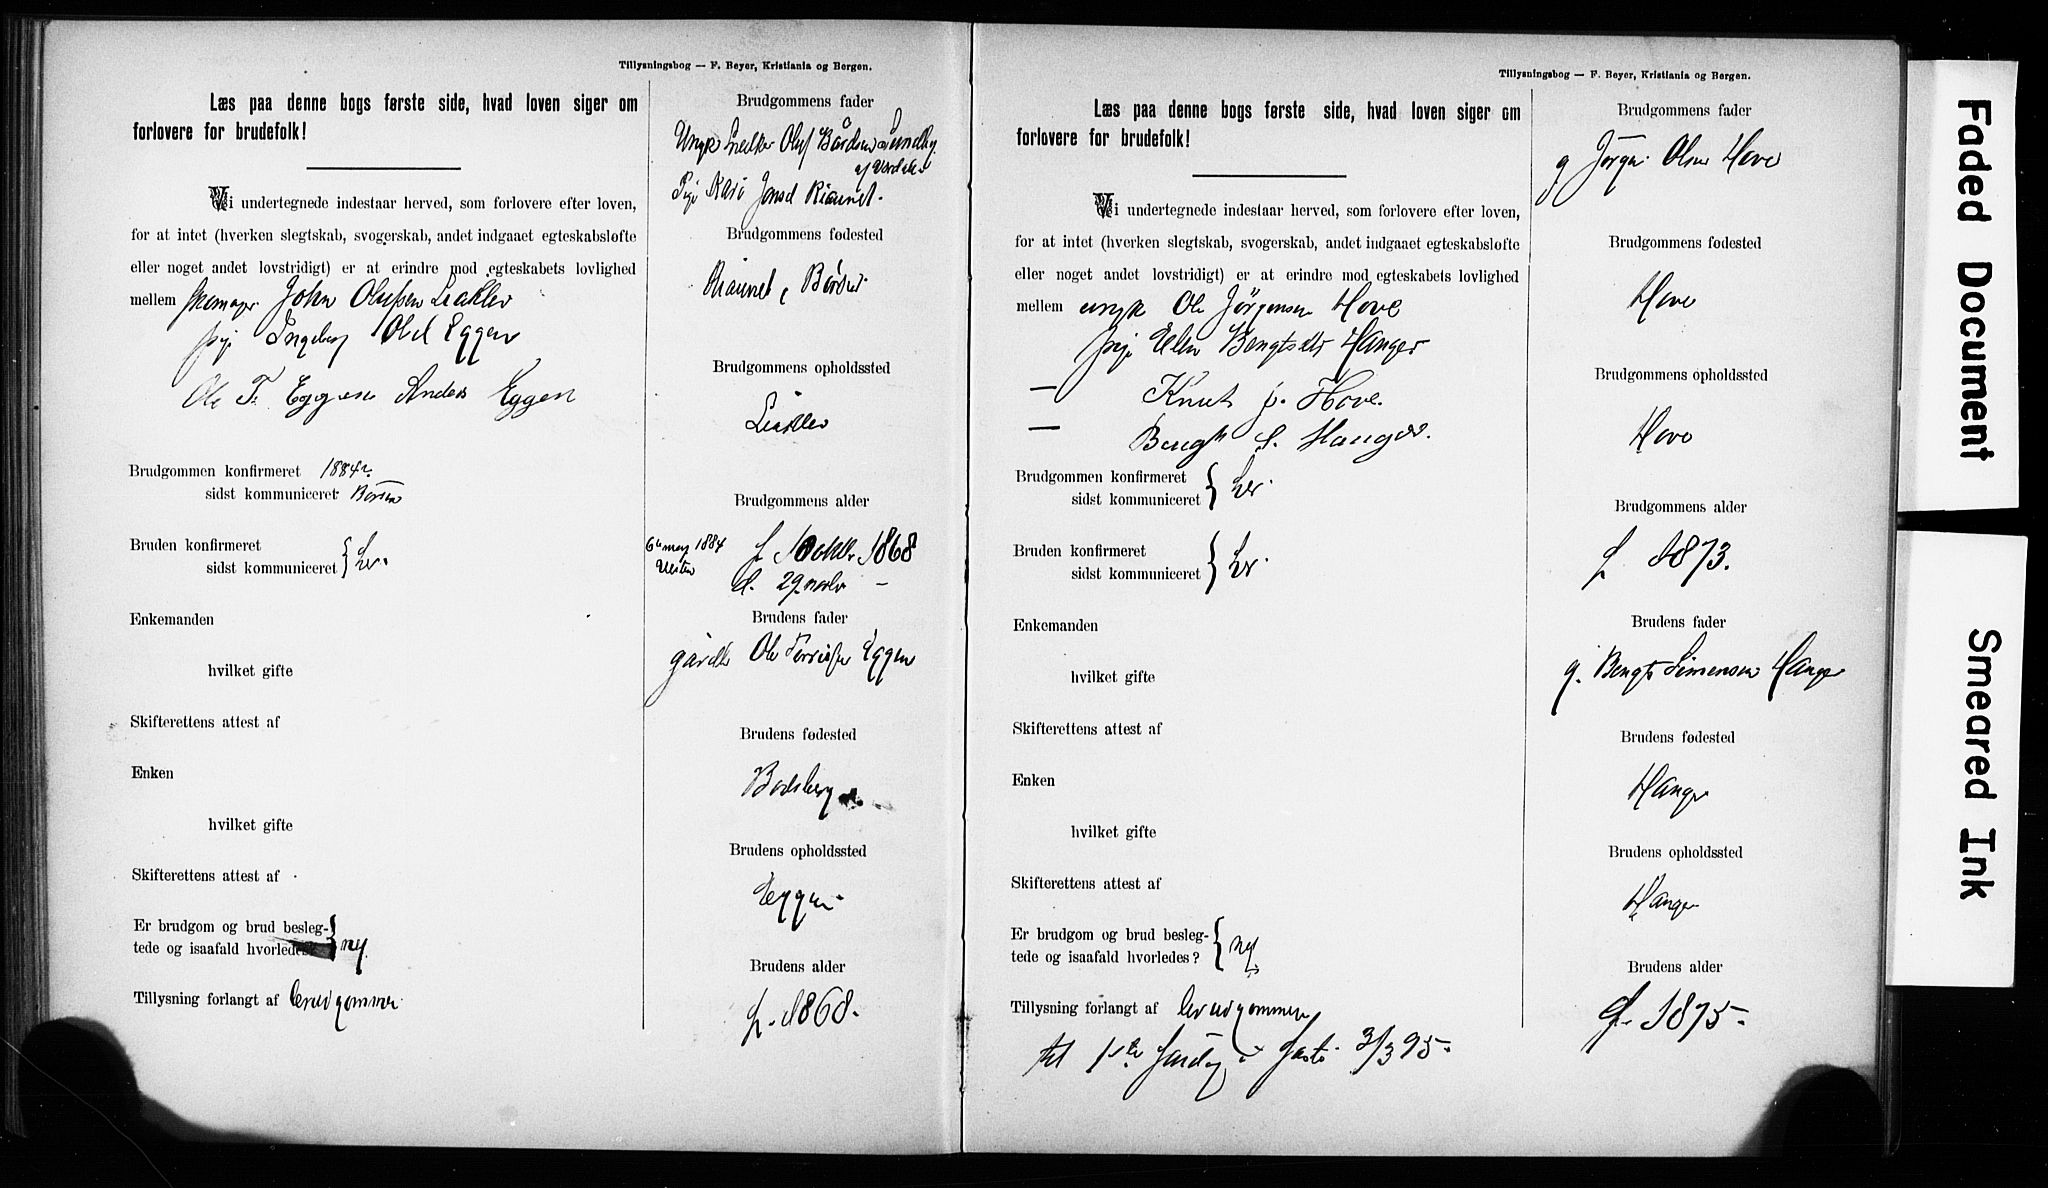 Tillysningsbog — F. Beyer, Kristiania og Bergen.
Læs paa denne bogs første side, hvad loven siger om
forlovere for brudefolk!
Vi undertegnede indestaar herved, som forlovere efter loven,
for at intet (hverken slegtskab, svogerskab, andet indgaaet egteskabsløfte
eller noget andet lovstridigt) er at erindre mod egteskabets lovlighed
mellem skomager John Olufsen
pige Ingeborg Olsd Eggen
Ole T. Eggen Anders Eggen
Brudgommen konfirmeret 1884
sidst kommuniceret Børsen
Bruden konfirmeret
sidst kommuniceret } her.
Enkemanden
hvilket gifte
Skifterettens attest af
Enken
hvilket gifte
Skifterettens attest af
Er brudgom og brud besleg-
tede og isaafald hvorledes } nej.
Tillysning forlangt af brudgommen
Brudgommens fader
Ungk Oluf Bårdsen Sundby
af Værdalen
Pige Kari Jonsd Riaunet.
Brudgommens fødested
Riaunet, Børsen
Brudgommens opholdssted
Brudgommens alder
1884 f. 1 oktbr 1868
d. 29 novbr —
Brudens fader
gårdbr Ole Eggen
Brudens fødested
Bodsberg
Brudens opholdssted
Eggen
Brudens alder
f. 1868.
Tillysningsbog — F. Beyer, Kristiania og Bergen.
Læs paa denne bogs første side, hvad loven siger om
forlovere for brudefolk!
Vi undertegnede indestaar herved, som forlovere efter loven,
for at intet (hverken slegtskab, svogerskab, andet indgaaet egteskabsløfte
eller noget andet lovstridigt) er at erindre mod egteskabets lovlighed
mellem ungk Ole Jörgensen Hove
pige Ellen Bengtsdtr Hanger
— Knut J. Hove.
— Bengt S. Hanger.
Brudgommen konfirmeret
sidst kommuniceret } her.
Bruden konfirmeret
sidst kommuniceret } her.
Enkemanden
hvilket gifte
Skifterettens attest af
Enken
hvilket gifte
Skifterettens attest af
Er brudgom og brud besleg-
tede og isaafald hvorledes? } nej.
Tillysning forlangt af brudgommen
til 1ste søndag i faste 3/3 95.
Brudgommens fader
g. Jörgen Olsen Hove
Brudgommens fødested
Hove
Brudgommens opholdssted
Hove
Brudgommens alder
f. 1873.
Brudens fader
g. Bengt Simensen Hanger
Brudens fødested
Hanger
Brudens opholdssted
Hanger
Brudens alder
f. 1875.
Faded Document
Smeared Ink